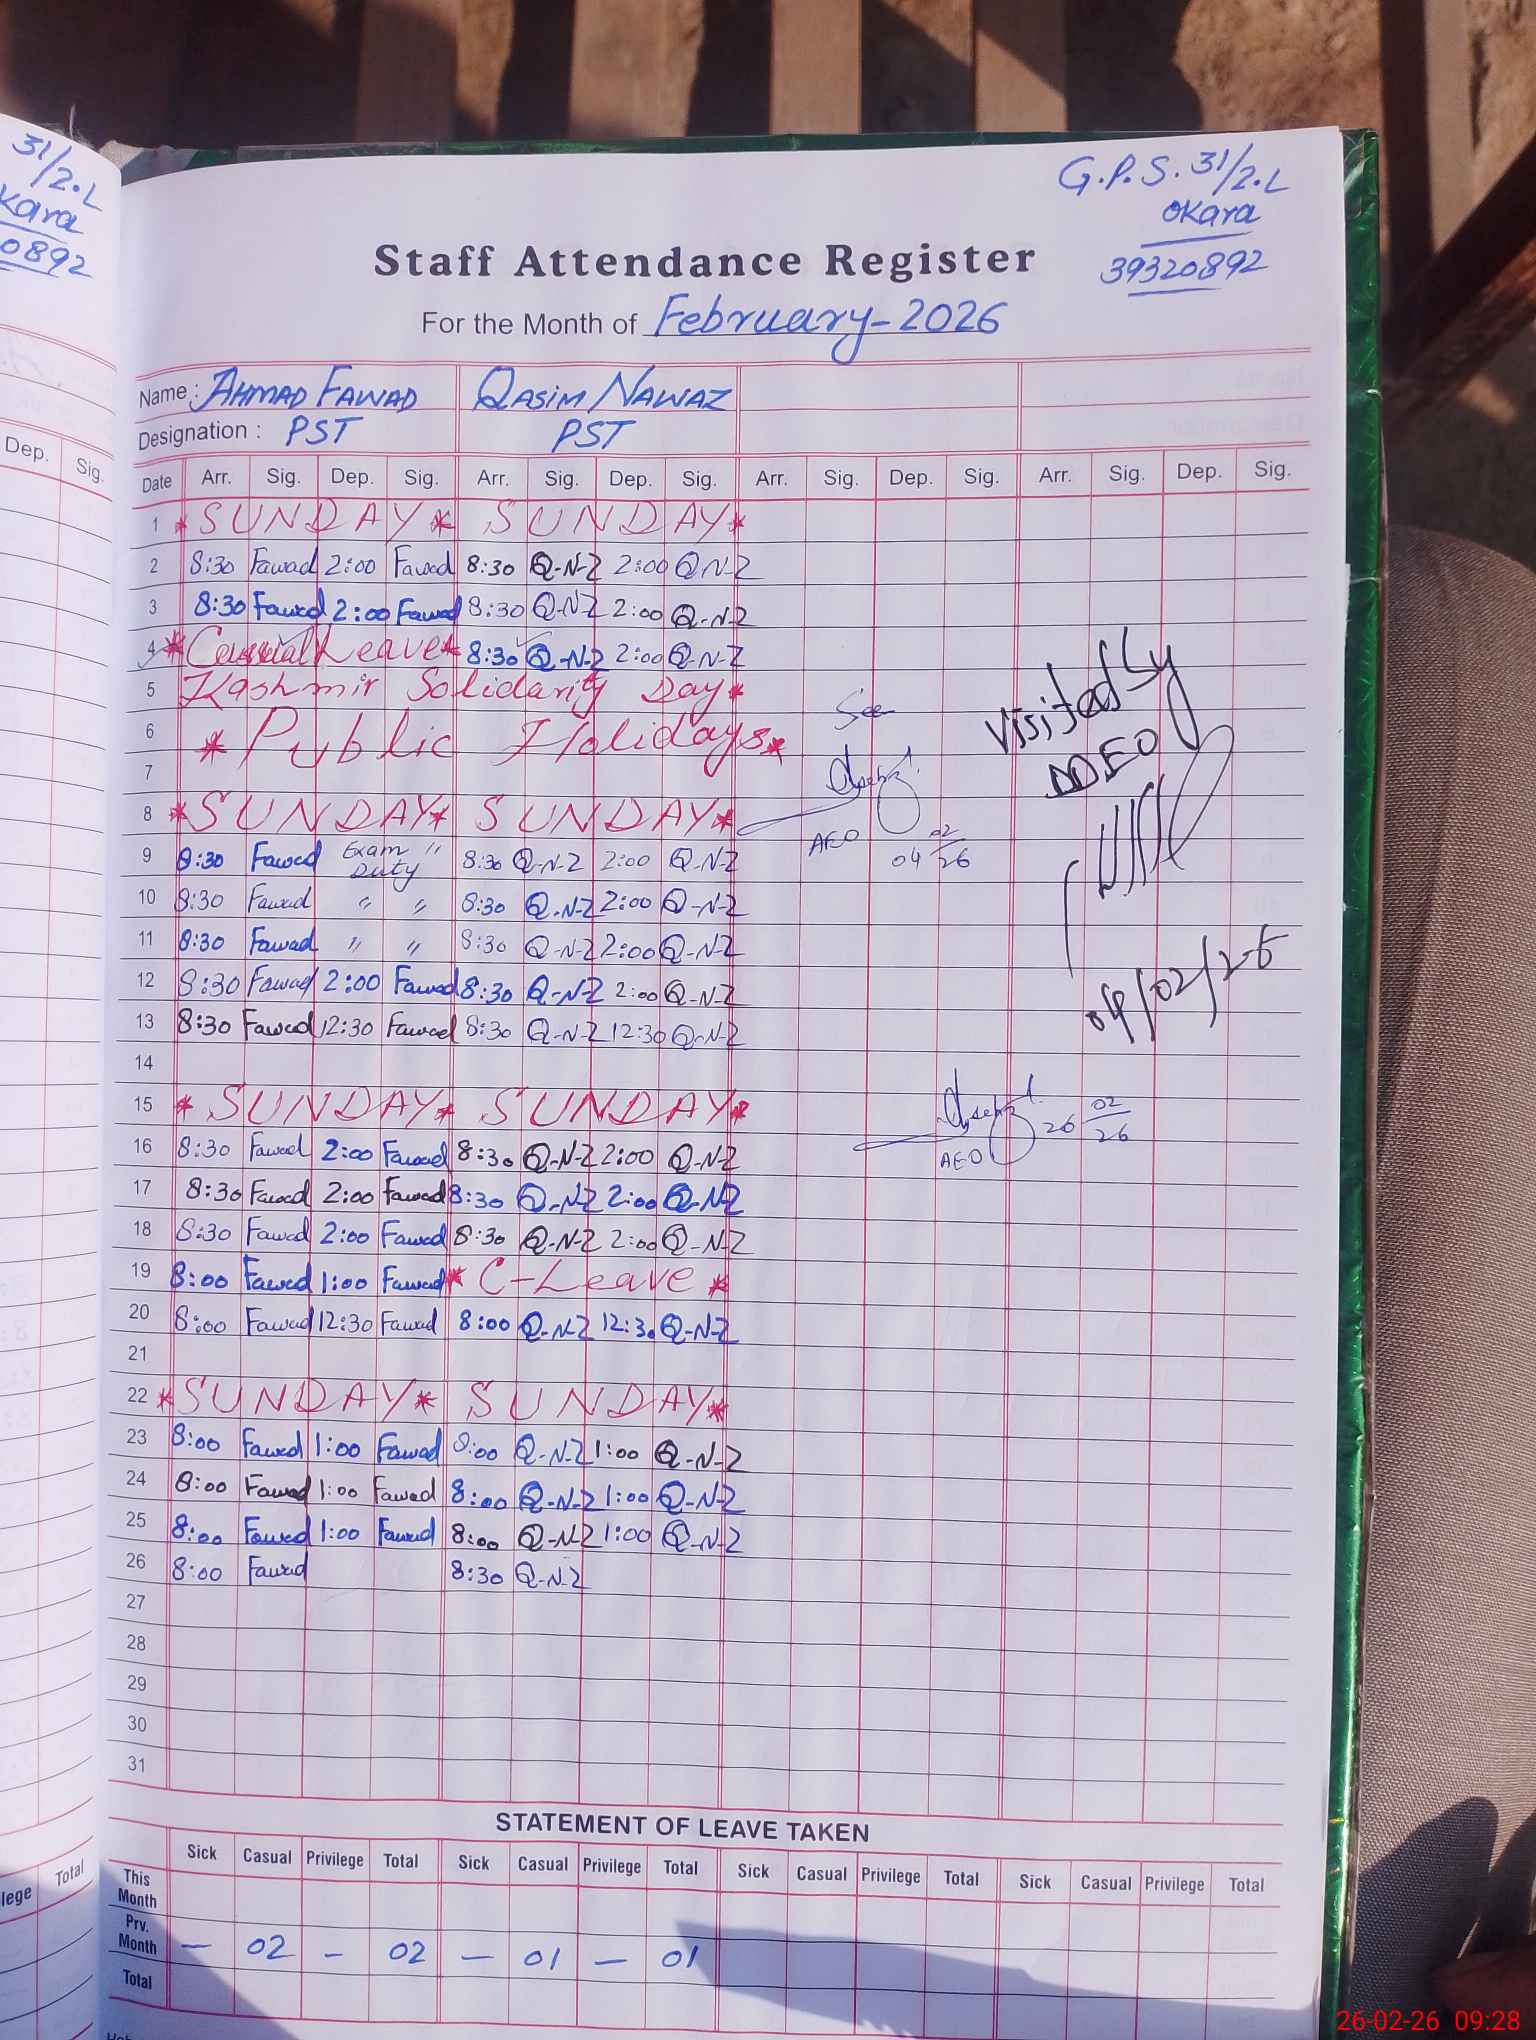 31/2.L
Kara
0892
G.P.S. 31/2.L
OKara
39320892
Staff Attendance Register
For the Month of February-2026
Name : AHMAD FAWAD QASIM NAWAZ
Designation : PST PST
Dep. Sig.
Date Arr. Sig. Dep. Sig. Arr. Sig. Dep. Sig. Arr. Sig. Dep. Sig. Arr. Sig. Dep. Sig.
1 * SUNDAY * SUNDAY *
2 8:30 Fawad 2:00 Fawad 8:30 Q-N-Z 2:00 Q-N-Z
3 8:30 Fawad 2:00 Fawad 8:30 Q-N-Z 2:00 Q-N-Z
4 * Casual Leave * 8:30 Q-N-Z 2:00 Q-N-Z
5 Kashmir Solidarity Day *
6 * Public Holidays *
7
8 * SUNDAY * SUNDAY *
9 8:30 Fawad Exam Duty " 8:30 Q-N-Z 2:00 Q-N-Z
10 8:30 Fawad " " 8:30 Q-N-Z 2:00 Q-N-Z
11 8:30 Fawad " " 8:30 Q-N-Z 2:00 Q-N-Z
12 8:30 Fawad 2:00 Fawad 8:30 Q-N-Z 2:00 Q-N-Z
13 8:30 Fawad 12:30 Fawad 8:30 Q-N-Z 12:30 Q-N-Z
14
15 * SUNDAY * SUNDAY *
16 8:30 Fawad 2:00 Fawad 8:30 Q-N-Z 2:00 Q-N-Z
17 8:30 Fawad 2:00 Fawad 8:30 Q-N-Z 2:00 Q-N-Z
18 8:30 Fawad 2:00 Fawad 8:30 Q-N-Z 2:00 Q-N-Z
19 8:00 Fawad 1:00 Fawad * C-Leave *
20 8:00 Fawad 12:30 Fawad 8:00 Q-N-Z 12:30 Q-N-Z
21
22 * SUNDAY * SUNDAY *
23 8:00 Fawad 1:00 Fawad 8:00 Q-N-Z 1:00 Q-N-Z
24 8:00 Fawad 1:00 Fawad 8:00 Q-N-Z 1:00 Q-N-Z
25 8:00 Fawad 1:00 Fawad 8:00 Q-N-Z 1:00 Q-N-Z
26 8:00 Fawad 8:30 Q-N-Z
27
28
29
30
31
See
AEO 04 02/26
Visited by
DDEO
04/02/26
AEO 26 02/26
STATEMENT OF LEAVE TAKEN
Sick Casual Privilege Total Sick Casual Privilege Total Sick Casual Privilege Total Sick Casual Privilege Total
This Month
Prv. Month — 02 — 02 — 01 — 01
Total
lege Total
26-02-26 09:28